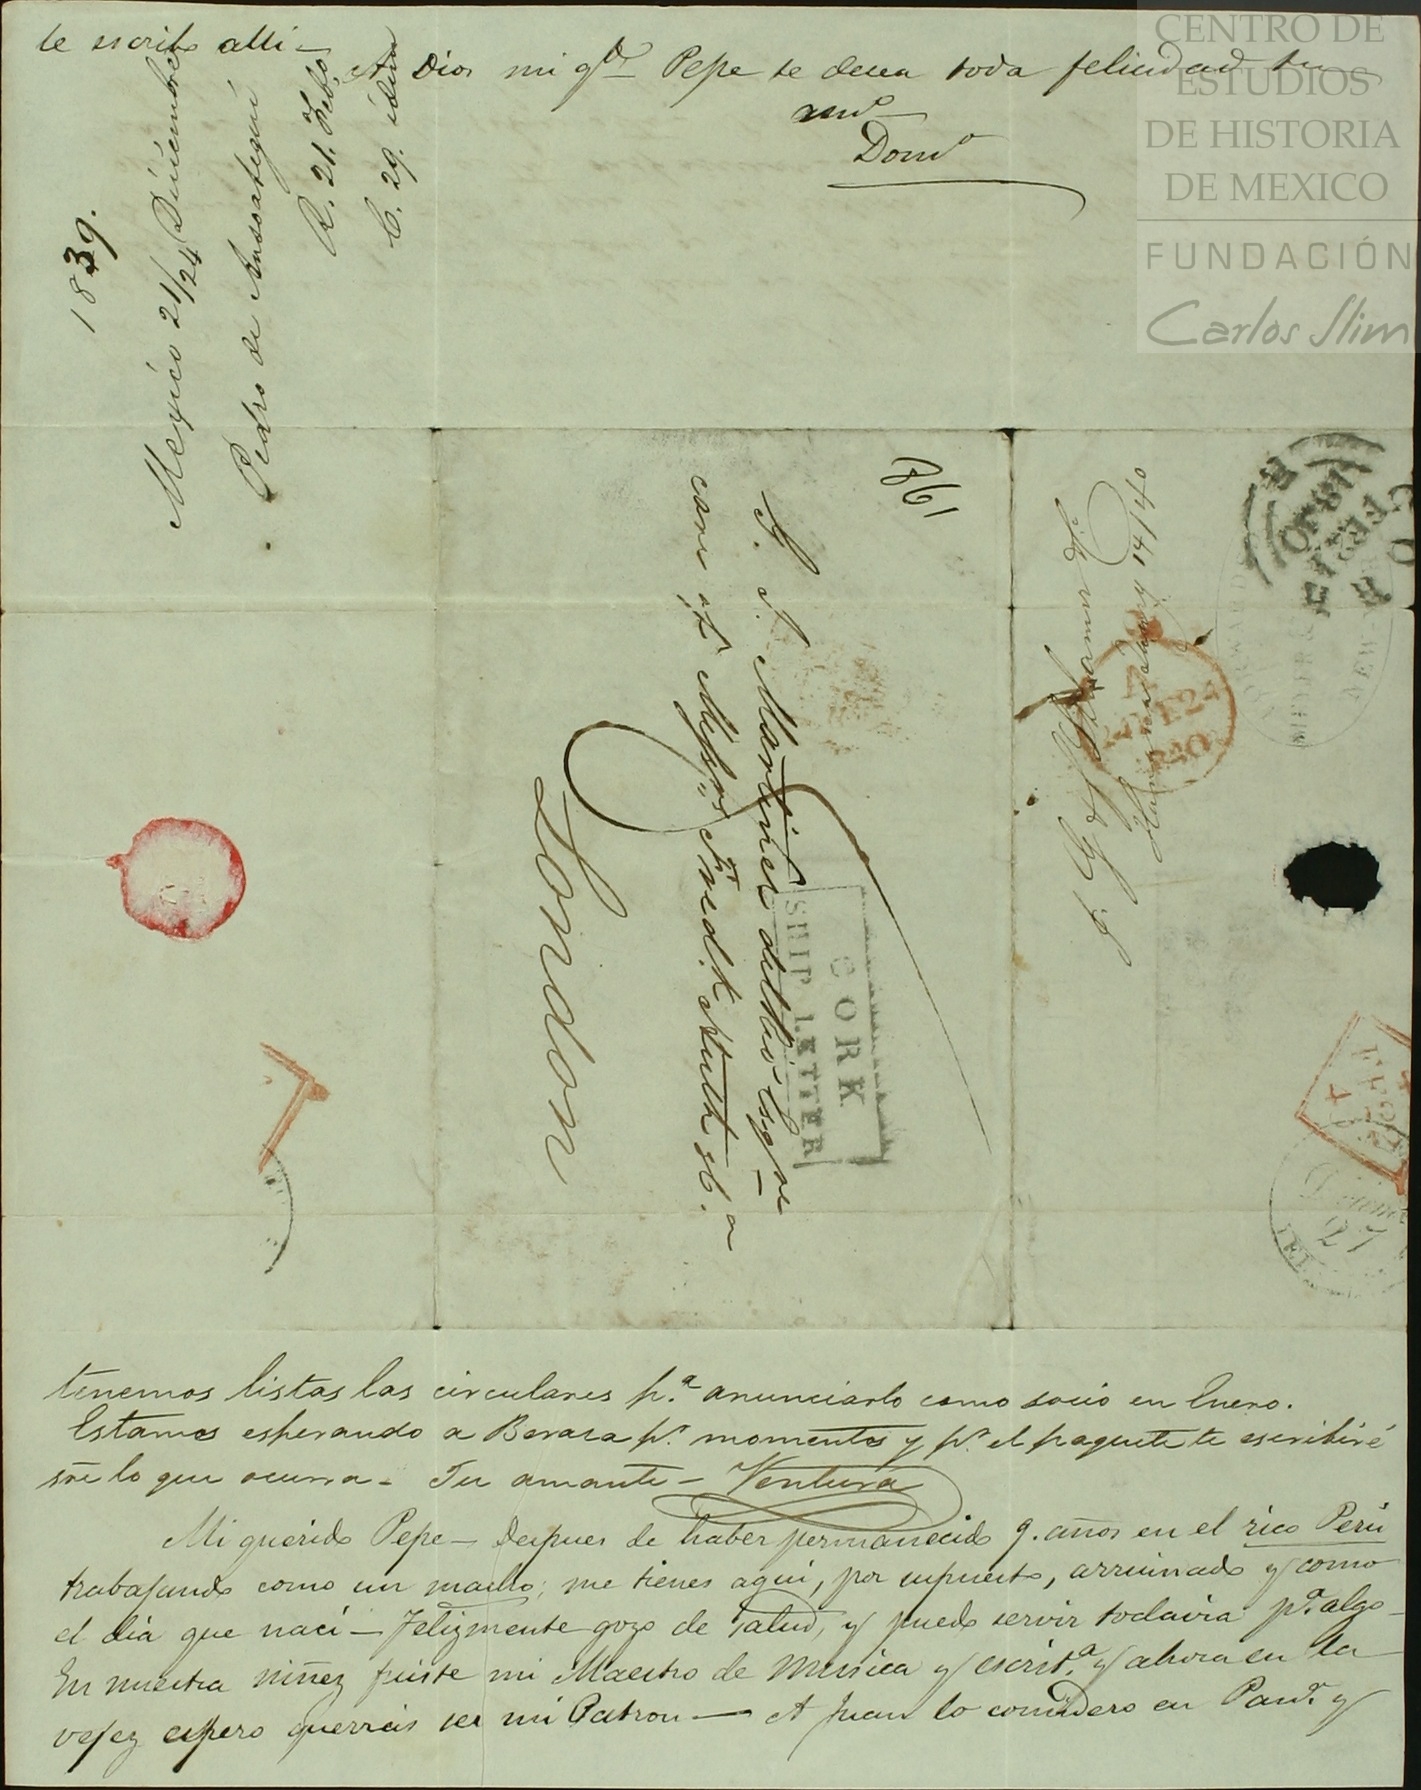 te escrito alli –
A Dios mi qdo Pepe te desea toda felicidad tu
amo
Domo
1839.
Mexico 21/24 Diciembre
Pedro de Ansoategui
R. 21. Febo
C. 29. idem
CENTRO DE
ESTUDIOS
DE HISTORIA
DE MEXICO
FUNDACIÓN
Carlos Slim
198
J. P. Martinez del Rio Esqre
care of Messrs Fredk Huth & Co.
London
CORK
SHIP LETTER
14/40
1840
FE 24
1840
27
tenemos listas las circulares p.a anunciarlo como socio en Enero.
Estamos esperando a Beraza pr. momentos y pr. el paquete te escribiré
sre lo que ocurra – Tu amante – Ventura
Mi querido Pepe – Despues de haber permanecido 9. años en el rico Perú
trabajando como un macho, me tienes aqui, por supuesto, arruinado y como
el dia que naci – Felizmente gozo de salud, y puedo servir todavia pa. algo –
En nuestra niñez fuiste mi Maestro de Musica y escrit.a y ahora en la
vejez espero querrais ser mi Patron – A Juan lo considero en Pam.a y